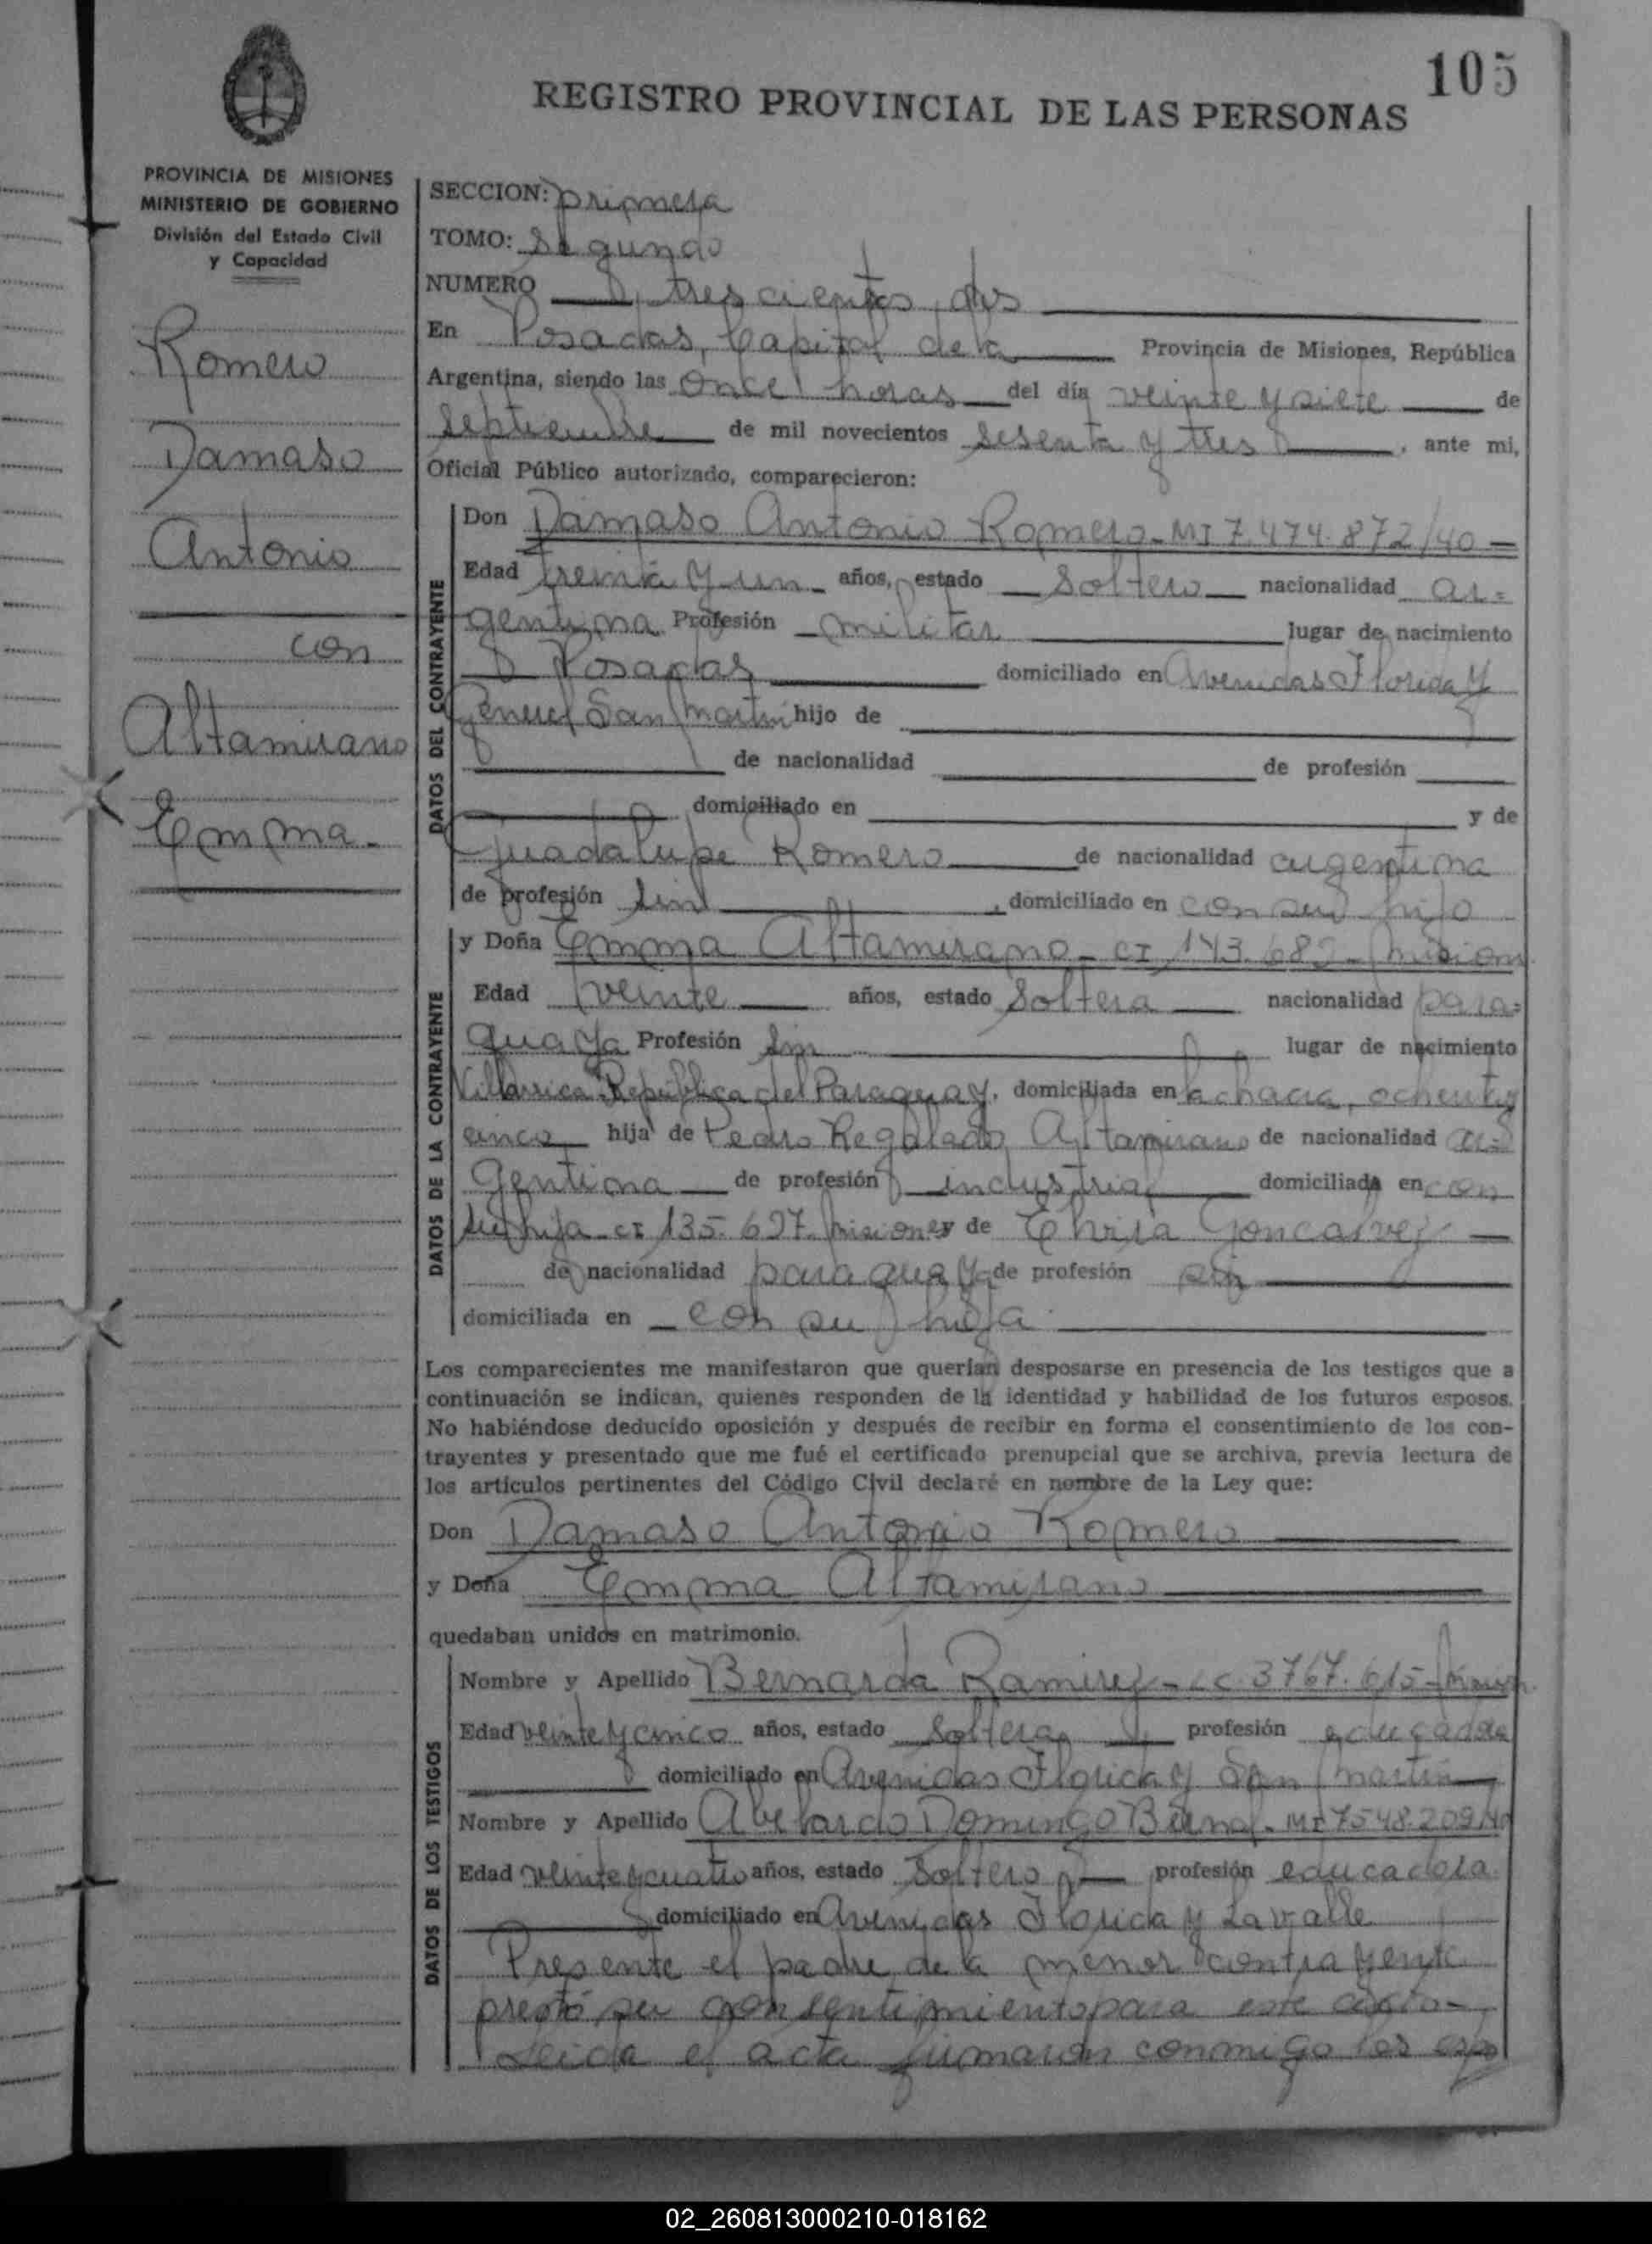 105
REGISTRO PROVINCIAL DE LAS PERSONAS
PROVINCIA DE MISIONES
MINISTERIO DE GOBIERNO
División del Estado Civil
y Capacidad
Romero
Damaso
Antonio
con
Altamirano
Emma.
SECCION: primera
TOMO: Segundo
NUMERO trescientos dos
En Posadas, Capital de la Provincia de Misiones, República
Argentina, siendo las once horas del día veinte y siete de
Septiembre de mil novecientos sesenta y tres, ante mi,
Oficial Público autorizado, comparecieron:
DATOS DEL CONTRAYENTE
Don Damaso Antonio Romero - MI 7.474.872/40 -
Edad treinta y un años, estado Soltero nacionalidad ar=
gentina Profesión militar lugar de nacimiento
Posadas domiciliado en Avenidas Florida y
General San Martin hijo de
de nacionalidad de profesión
domiciliado en y de
Guadalupe Romero de nacionalidad argentina
de profesión sin, domiciliado en con su hijo
DATOS DE LA CONTRAYENTE
y Doña Emma Altamirano - CI 143.682 - Mision
Edad veinte años, estado Soltera nacionalidad para=
guaya Profesión sin lugar de nacimiento
Villarrica República del Paraguay, domiciliada en la chacra, ochenta y
cinco hija de Pedro Regalado Altamirano de nacionalidad ar=
gentina de profesión industrial domiciliada en con
su hija - CI 135.697 Misiones y de Elvira Goncalvez
de nacionalidad paraguaya de profesión sin
domiciliada en con su hija
Los comparecientes me manifestaron que querían desposarse en presencia de los testigos que a
continuación se indican, quienes responden de la identidad y habilidad de los futuros esposos.
No habiéndose deducido oposición y después de recibir en forma el consentimiento de los con-
trayentes y presentado que me fué el certificado prenupcial que se archiva, previa lectura de
los artículos pertinentes del Código Civil declaré en nombre de la Ley que:
Don Damaso Antonio Romero
y Doña Emma Altamirano
quedaban unidos en matrimonio.
DATOS DE LOS TESTIGOS
Nombre y Apellido Bernarda Ramirez - LC. 3767.615 -
Edad veinte y cinco años, estado Soltera profesión educadora
domiciliado en Avenidas Florida y San Martin
Nombre y Apellido Abelardo Domingo Bernal - MI 7548.209/40
Edad veinte y cuatro años, estado Soltero profesión educadora
domiciliado en Avenidas Florida y Lavalle
Presente el padre de la menor contrayente
prestó su consentimiento para este acto -
Leida el acta firmaron conmigo los esp
02_260813000210-018162